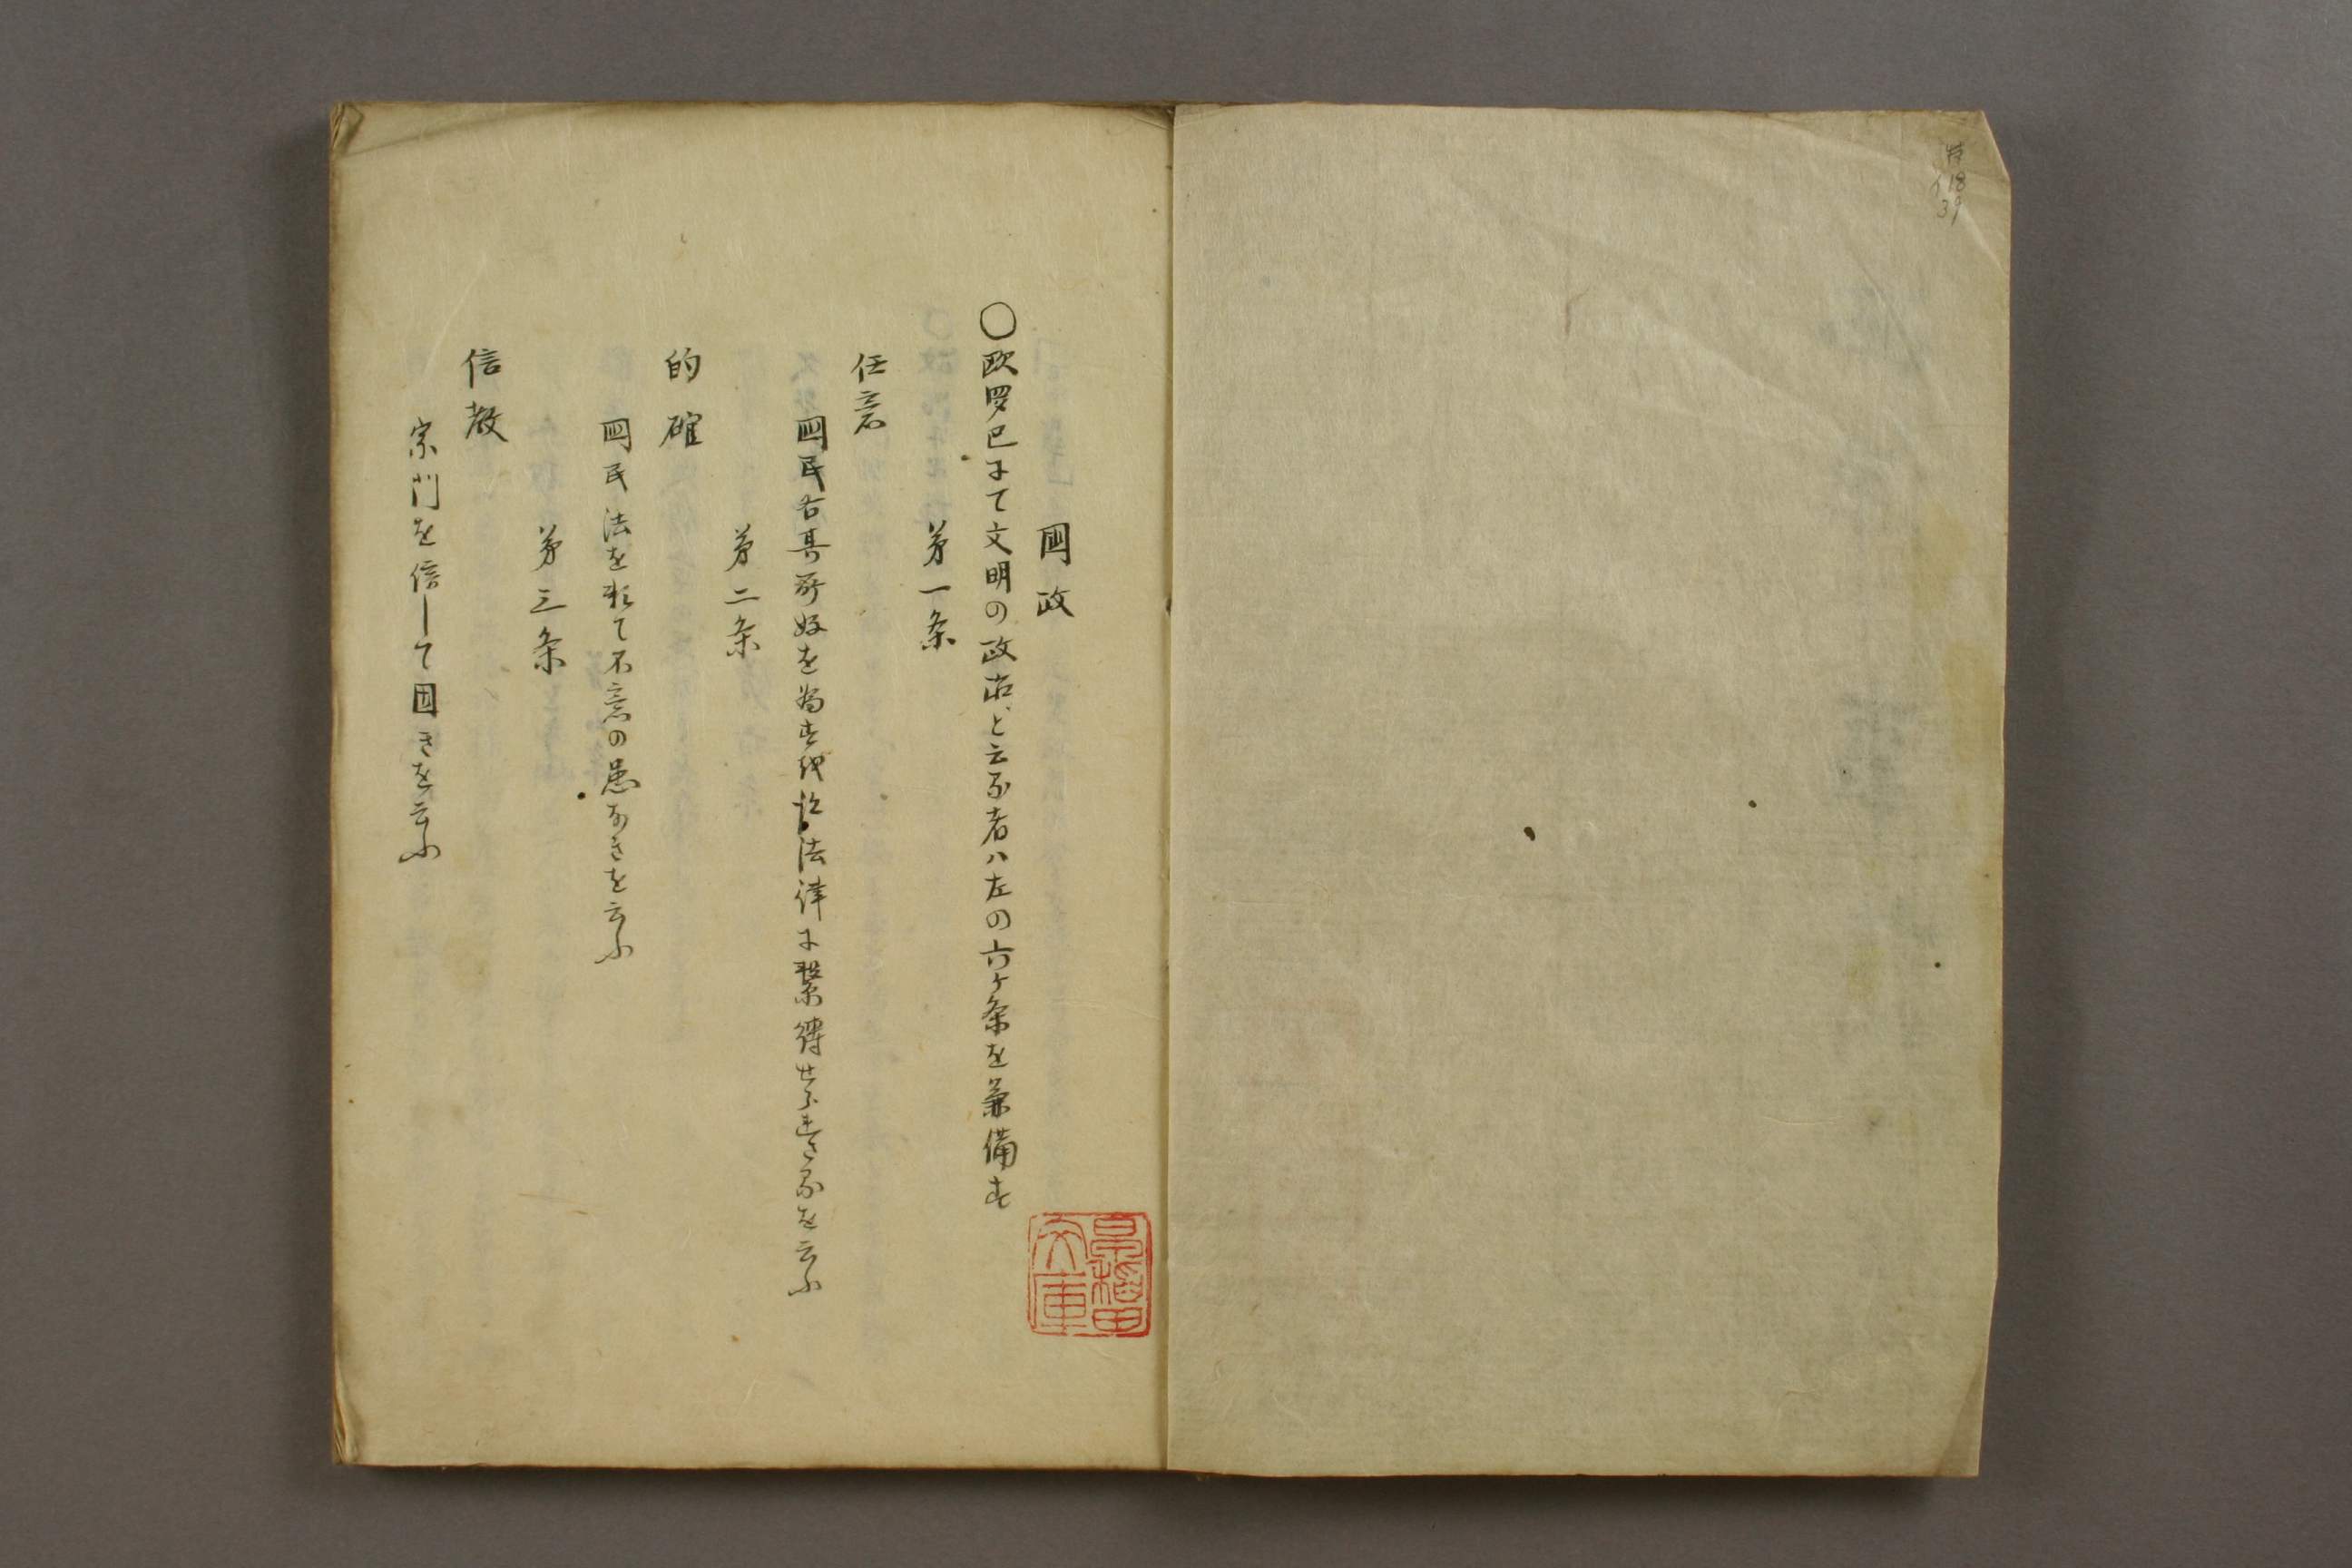 特
イ18
39
國政
〇欧罗巴にて文明の政治と云る者ハ左の六ケ条を兼備す
第一条
任意
國民各其所好を為す我法律に繋縛せられさるを云ふ
第二条
的確
国民法を頼て不意の患なきを云ふ
第三条
信教
宗門を信して固きを云ふ
早稲田
文庫